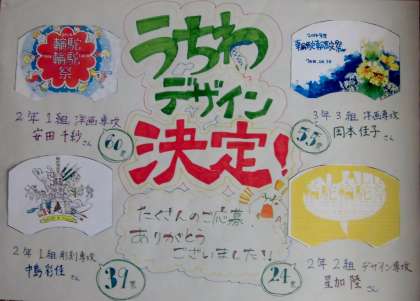 うちわ
デザイン
決定!
たくさんのご応募
ありがとう
ございました!!
駝駝
輪輪
祭
2年1組 洋画専攻
安田 千紗さん
60票
3年3組 洋画専攻
岡本 佳子さん
55票
2年1組 彫刻専攻
中島 彩佳さん
39票
2年2組 デザイン専攻
星加 陸さん
24票